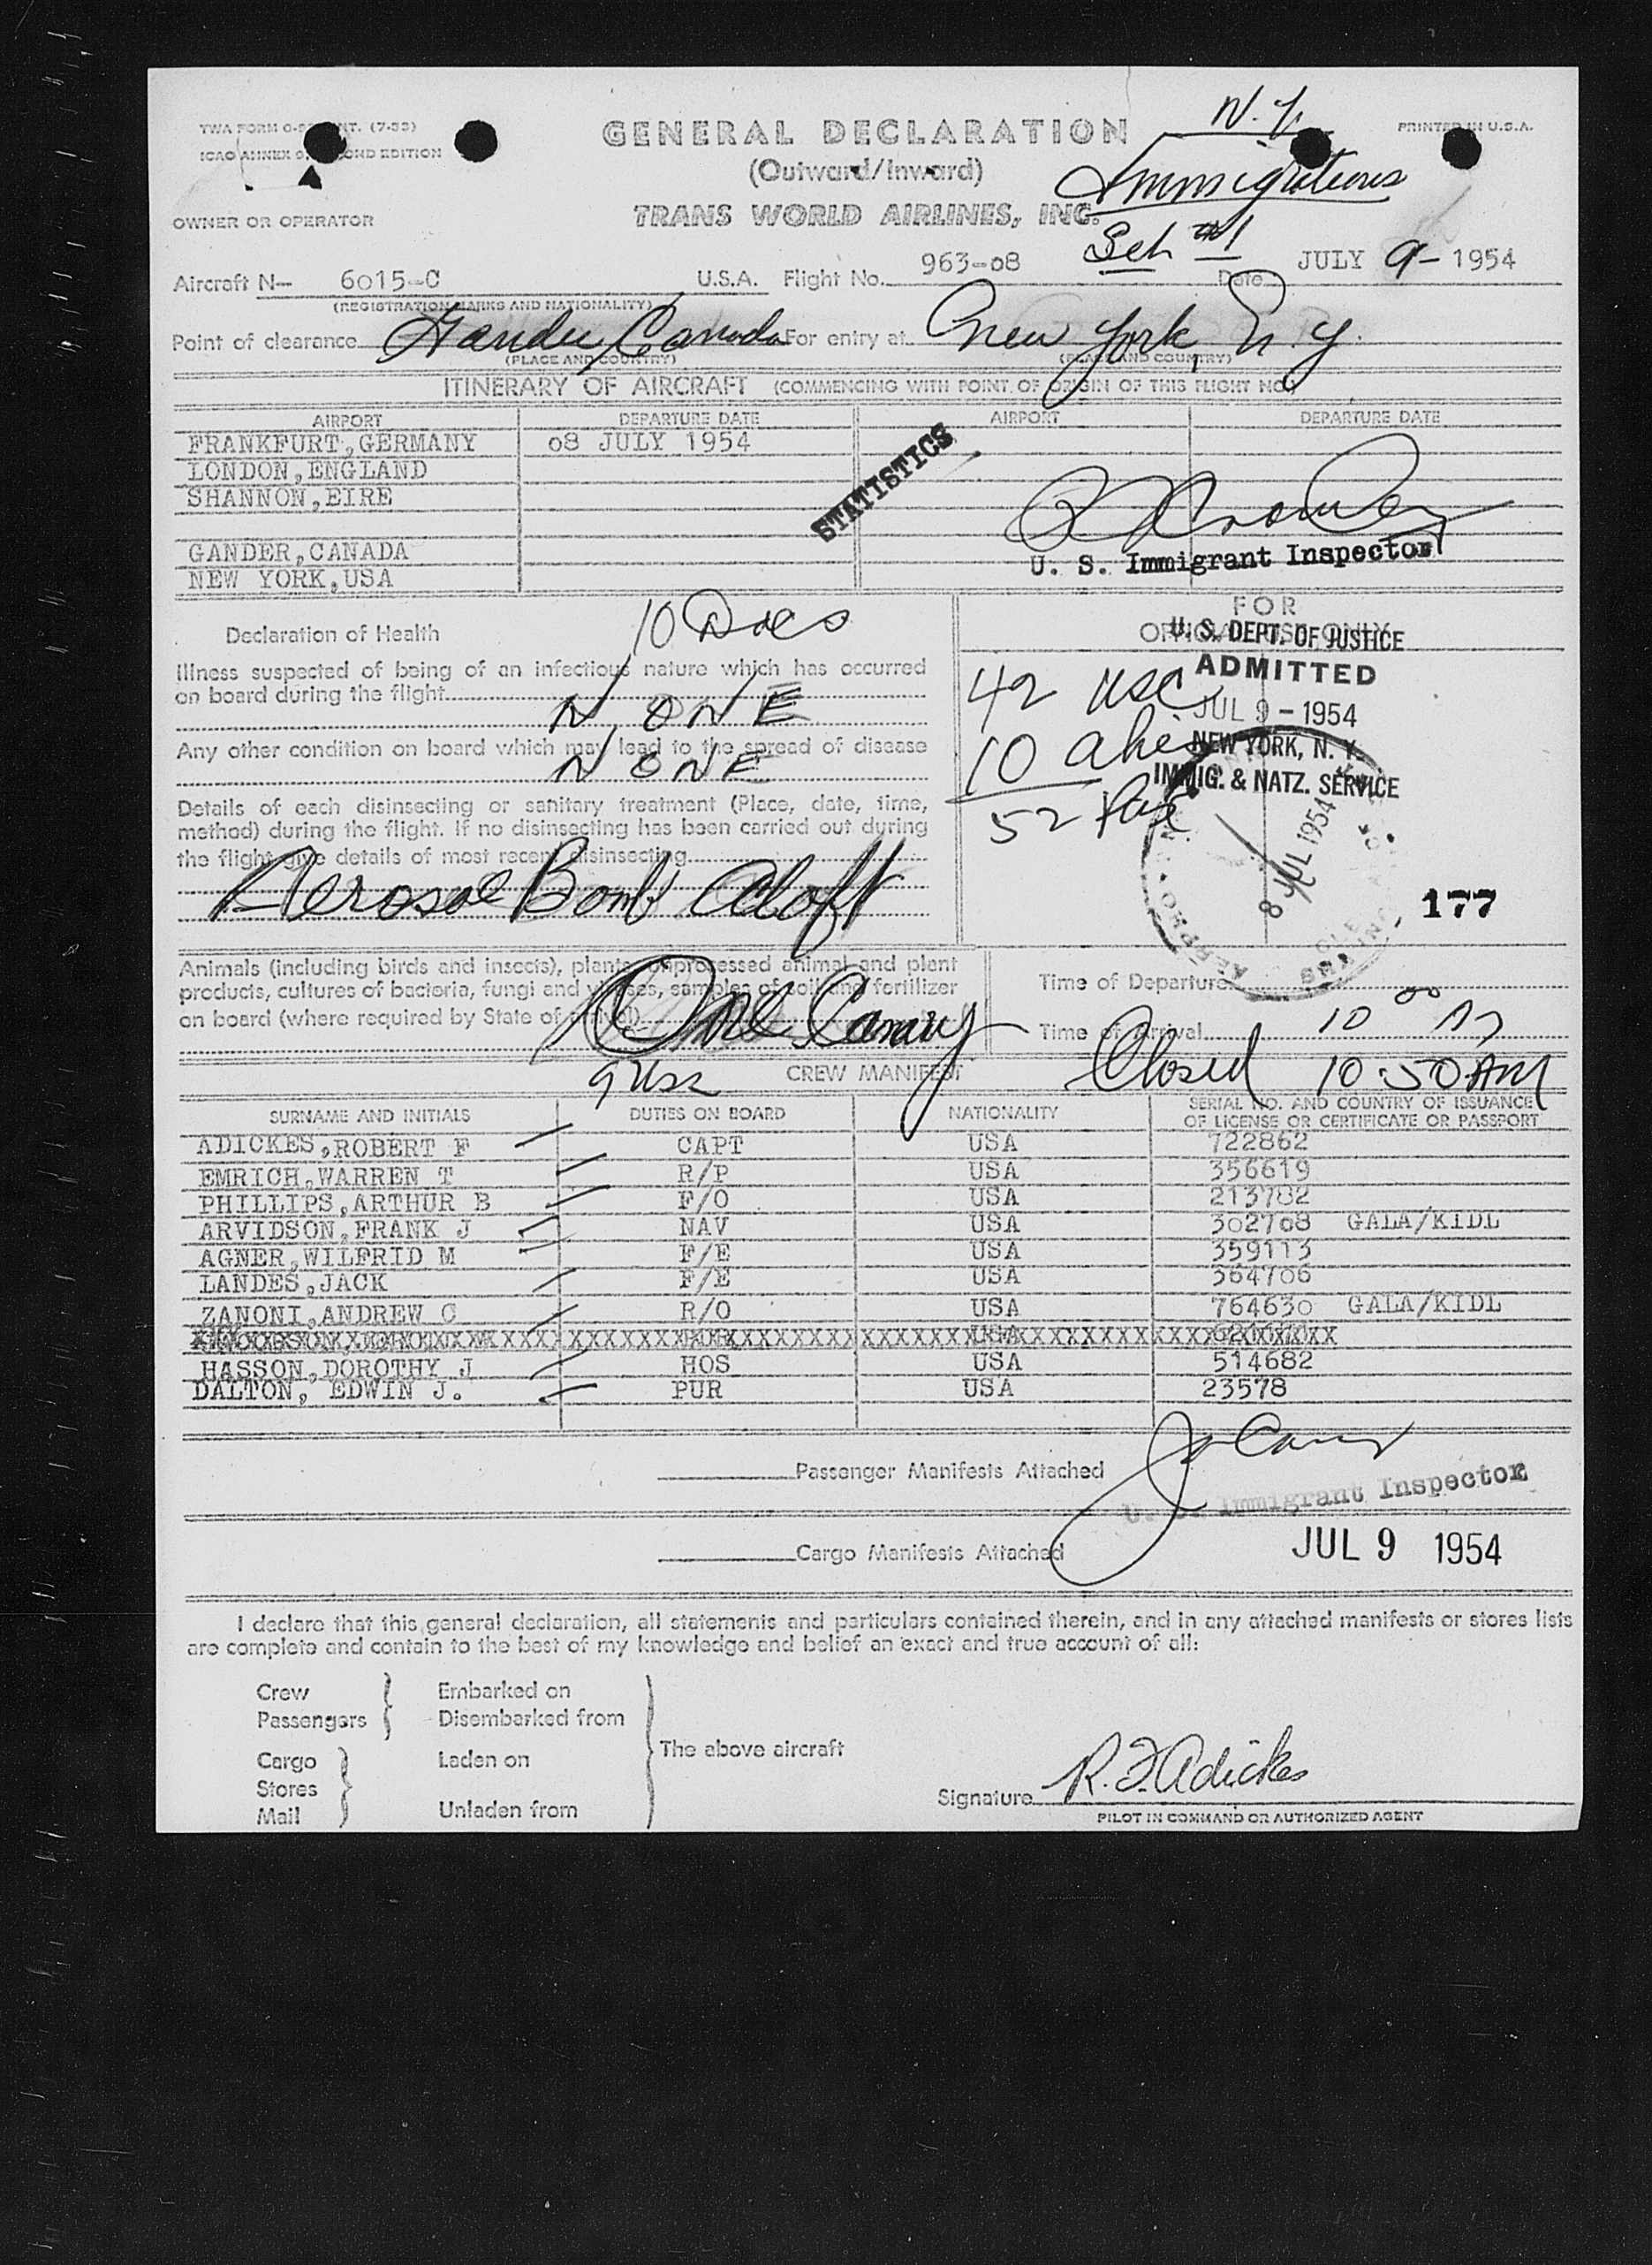 N.Y.
TWA FORM
ICAO ANNEX 9, SECOND EDITION
GENERAL DECLARATION
(Outward/Inward)
PRINTED IN U.S.A.
Immigrations
OWNER OR OPERATOR
TRANS WORLD AIRLINES, INC.
Sch #1
Aircraft N— 6015-C U.S.A. Flight No. 963-08 Date JULY 9- 1954
(REGISTRATION MARKS AND NATIONALITY)
Point of clearance Gander Canada For entry at New York, N.Y.
(PLACE AND COUNTRY) (PLACE AND COUNTRY)
ITINERARY OF AIRCRAFT (COMMENCING WITH POINT OF ORIGIN OF THIS FLIGHT NO.)
AIRPORT DEPARTURE DATE AIRPORT DEPARTURE DATE
FRANKFURT,GERMANY 08 JULY 1954
LONDON,ENGLAND
SHANNON,EIRE
STATISTICS
GANDER,CANADA
U. S. Immigrant Inspector
NEW YORK,USA
10 Docs
FOR
OFFICIAL USE ONLY
Declaration of Health
U. S. DEPT. OF JUSTICE
ADMITTED
JUL 9 - 1954
NEW YORK, N. Y.
IMMIG. & NATZ. SERVICE
Illness suspected of being of an infectious nature which has occurred
on board during the flight
NONE
42 USC
Any other condition on board which may lead to the spread of disease
NONE
10
52
Details of each disinsecting or sanitary treatment (Place, date, time,
method) during the flight. If no disinsecting has been carried out during
the flight give details of most recent disinsecting
Aerosol Bomb Aloft
8 JUL 1954
177
Animals (including birds and insects), plants, unprocessed animal and plant
products, cultures of bacteria, fungi and viruses, samples of soil and fertilizer
on board (where required by State of arrival)
One Canary
Time of Departure
Time of Arrival 10 00
Closed 10:50 AM
9 USC
CREW MANIFEST
SURNAME AND INITIALS DUTIES ON BOARD NATIONALITY SERIAL NO. AND COUNTRY OF ISSUANCE
OF LICENSE OR CERTIFICATE OR PASSPORT
ADICKES,ROBERT F CAPT USA 722862
EMRICH,WARREN T R/P USA 356619
PHILLIPS,ARTHUR B F/O USA 213782
ARVIDSON,FRANK J NAV USA 302708 GALA/KIDL
AGNER,WILFRID M F/E USA 359113
LANDES,JACK F/E USA 364706
ZANONI,ANDREW C R/O USA 764630 GALA/KIDL
HASSON,DOROTHY J HOS USA 514682
DALTON, EDWIN J. PUR USA 23578
Passenger Manifests Attached
U. S. Immigrant Inspector
Cargo Manifests Attached
JUL 9 1954
I declare that this general declaration, all statements and particulars contained therein, and in any attached manifests or stores lists
are complete and contain to the best of my knowledge and belief an exact and true account of all:
Crew Embarked on
Passengers Disembarked from
The above aircraft
Cargo Laden on
Stores
Mail Unladen from
Signature R. F. Adickes
PILOT IN COMMAND OR AUTHORIZED AGENT